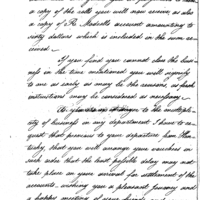 a copy of the bills you will now receive as also
a copy of Mr. Medrells account amounting to
sixty dollars which is included in the sum re-
ceived.
If you find you cannot close the busi-
ness in the time mentioned you will signify
to me as early as may be the reasons, as fresh
instructions may be considered as necessary.
to the multiplic-
ity of business in my department. I have to re-
quest that previous to your departure from Ken-
tucky, that you will arrange your vouchers in
such order that the least possible delay may not
take place on your arrival for settlement of the
accounts, wishing you a pleasant journey and
a happy meeting of your friends